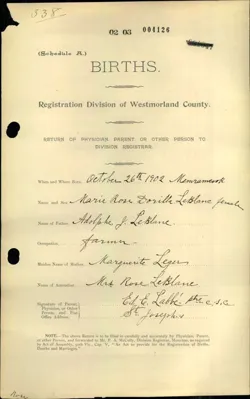 538
02 03 004126
(Schedule A.)
BIRTHS.
Registration Division of Westmorland County.
RETURN OF PHYSICIAN PARENT OR OTHER PERSON TO
DIVISION REGISTRAR.
When and Where Born, October 26th 1902 Memramcook
Name and Sex Marie Rose Dorilla LeBlanc female
Name of Father, Adolphe J. LeBlanc
Occupation, farmer
Maiden Name of Mother, Marguerite Leger
Name of Attendant, Mrs Rose LeBlanc
Signature of Parent, Physician, or Other Person, and Post Office Address. Ed. E. Labbé ptre c.s.c.
St Joseph's
NOTE.—The above Return is to be filled in carefully and accurately by Physician, Parent,
or other Person, and forwarded to
Act of Assembly, Cap. V. "An Act to provide for the Registration of Births,
Deaths and Marriages."